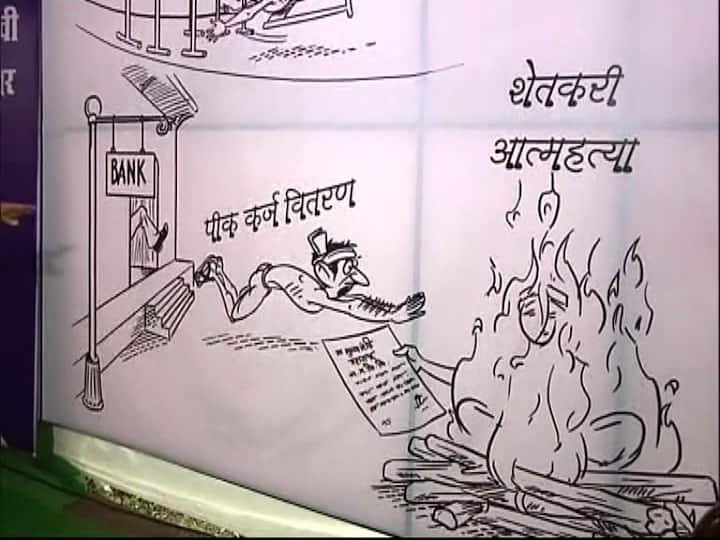 शेतकरी
आत्महत्या
BANK
पीक कर्ज वितरण